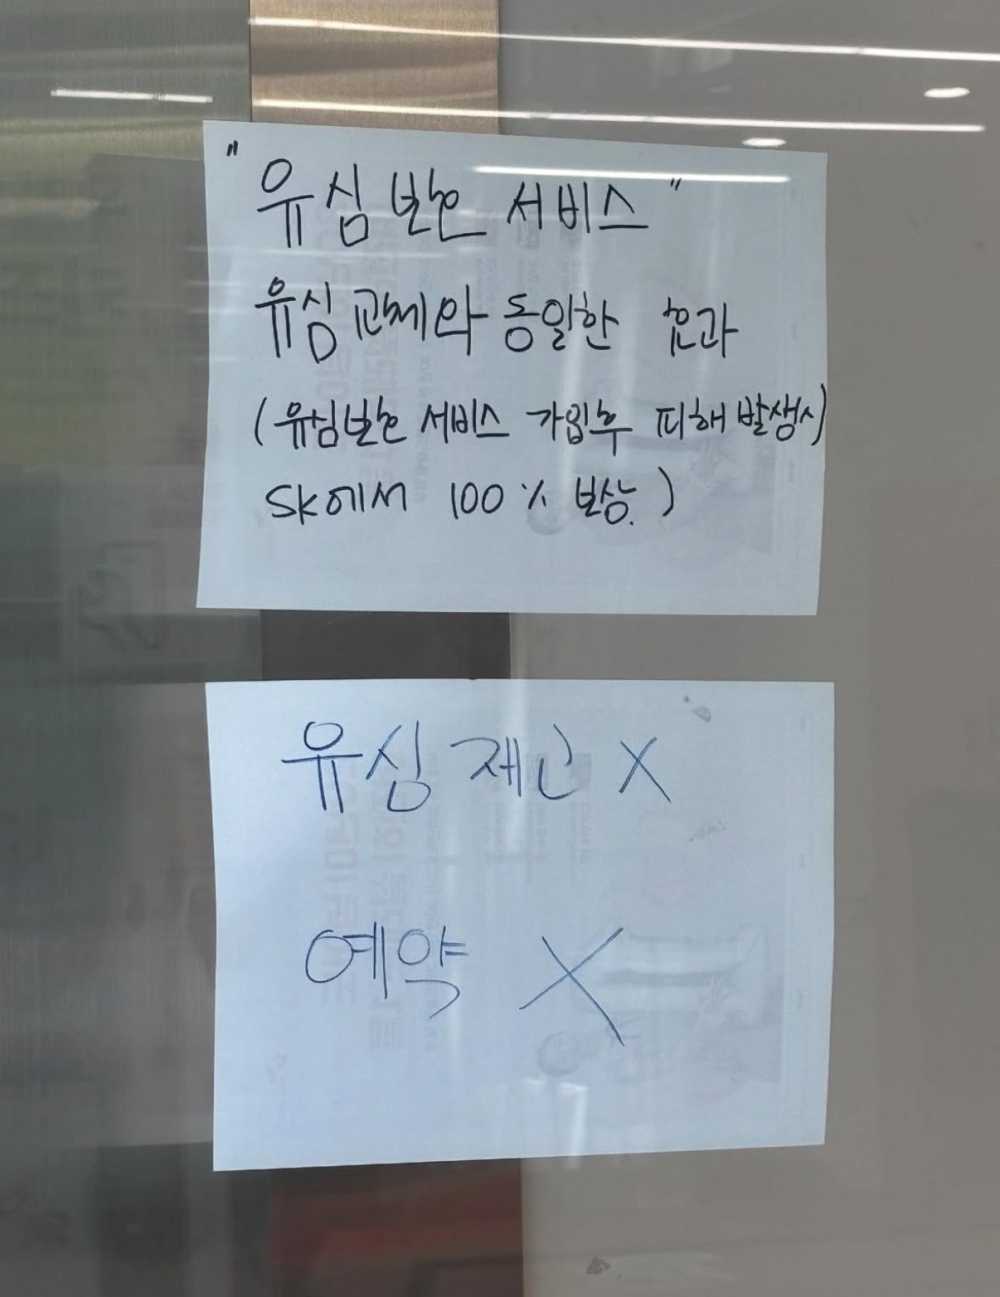 "유심보호 서비스"
유심교체와 동일한 효과
(유심보호 서비스 가입후 피해발생시)
SK에서 100% 보상.)
유심 재고 X
예약 X